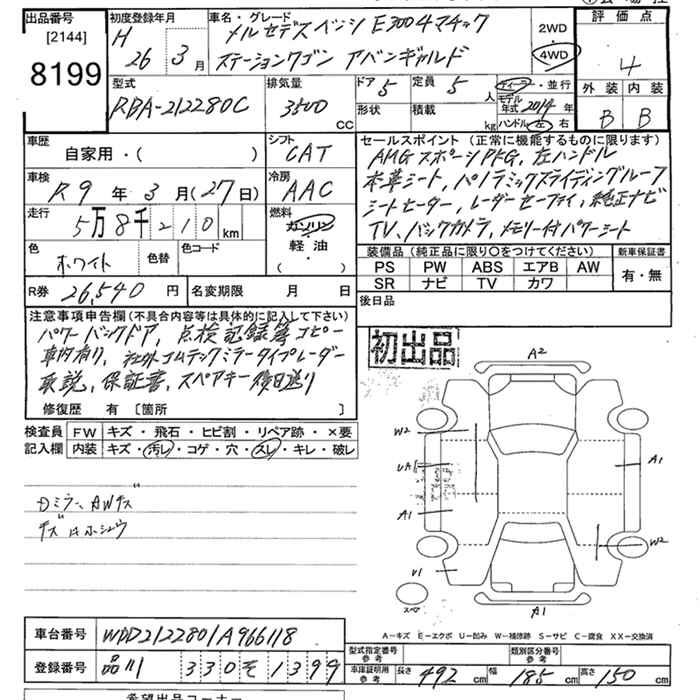 出品番号
[2144]
8199
初度登録年月
H
26 3月
車名・グレード
メルセデスベンツ E300 4マチック
ステーションワゴン アバンギャルド
2WD
4WD
評価点
4
外装 内装
B B
型式
RBA-212280C
排気量
3500
CC
ドア 5
定員 5 人
形状
積載 kg
ディーラー・並行
モデル年式 2014 年
ハンドル 左 右
車歴
自家用・( )
シフト
CAT
車検
R9年 3月(27日)
冷房
AAC
走行
5万8千210km
燃料
ガソリン
軽油・
( )
色
ホワイト
色替
色コード
R券 26,540 円
名変期限 月 日
セールスポイント (正常に機能するものに限ります)
AMGスポーツPKG, 左ハンドル
本革シート, パノラミックスライディングルーフ
シートヒーター, レーダーセーフティ, 純正ナビ
TV, バックカメラ, メモリー付パワーシート
装備品 (純正品に限り○をつけてください)
新車保証書
PS PW ABS エアB AW
SR ナビ TV カワ
有・無
後日品
注意事項申告欄 (不具合内容等は具体的に記入して下さい)
パワーバックドア, 点検記録簿コピー
車内有り, 社外コムテックミラータイプレーダー
取説, 保証書, スペアキー後日送り
修復歴 有 〔箇所 〕
初出品
検査員
記入欄
FW キズ・飛石・ヒビ割・リペア跡・×要
内装 キズ・汚レ・コゲ・穴・スレ・キレ・破レ
Dミラー, AWキズ
A2
W2
UA1
A1
U1
A1
W2
A1
スペア
A-キズ E-エクボ U-凹み W-補修跡 S-サビ C-腐食 XX-交換済
車台番号 WDD2122801A966118
登録番号 品川 330 そ 1399
型式指定番号
参考
類別区分番号
参考
車庫証明用
参考
長さ 492 cm 幅 185 cm 高さ 150 cm
希望出品コーナー